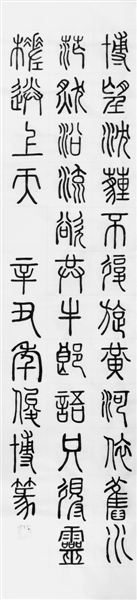 博望沈薶不復旋黃河依舊水
茫然沿流欲共牛郎語只得靈
槎送上天 辛丑年博篆